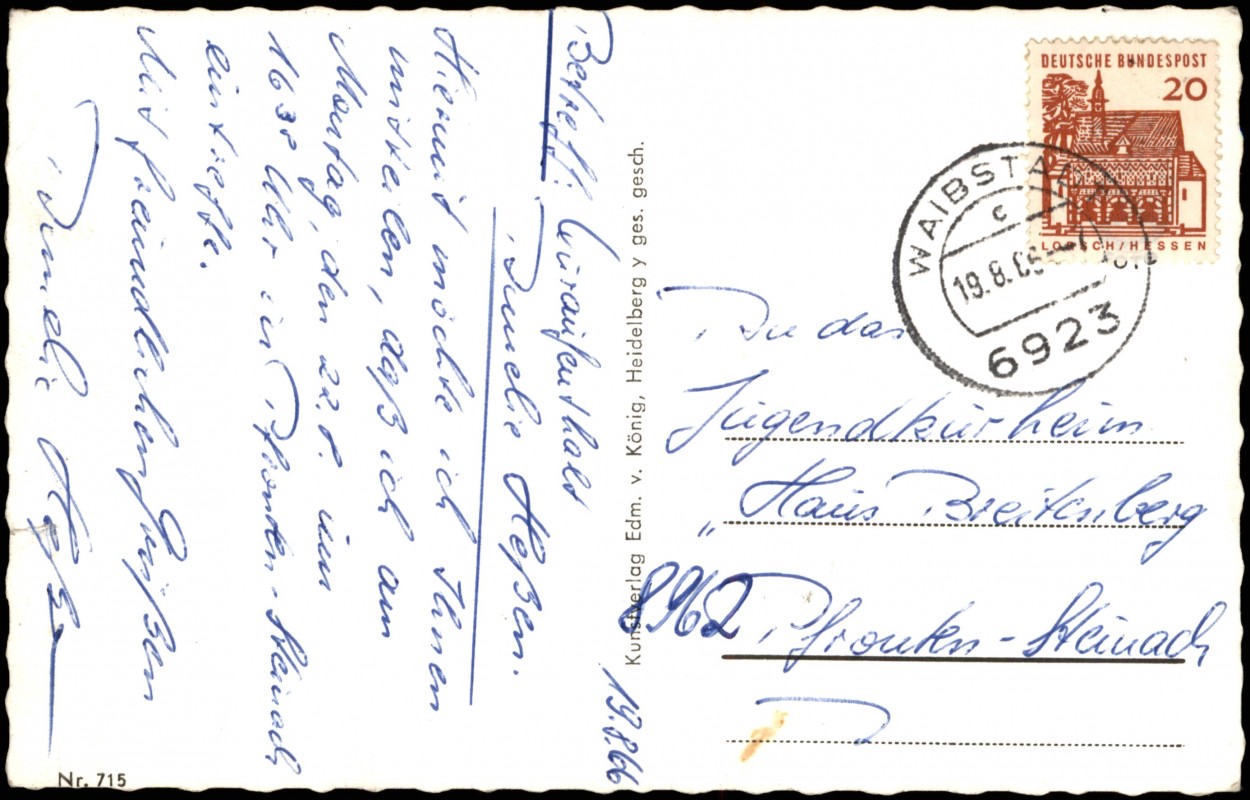 19.8.66
Betreff: Kuraufenthalt
Amelie Heßen.
Hiermit möchte ich Ihnen
mitteilen, daß ich am
Montag, den 22.8. um
1630 Uhr in Pfronten-Steinach
eintreffe.
Mit freundlichen Grüßen
Amelie
Nr. 715
Kunstverlag Edm. v. König, Heidelberg y ges. gesch.
DEUTSCHE BUNDESPOST
20
LORSCH/HESSEN
WAIBSTADT
c
19.8.66
6923
An das
Jugendkurheim
„Haus Breitenberg
8962 Pfronten-Steinach